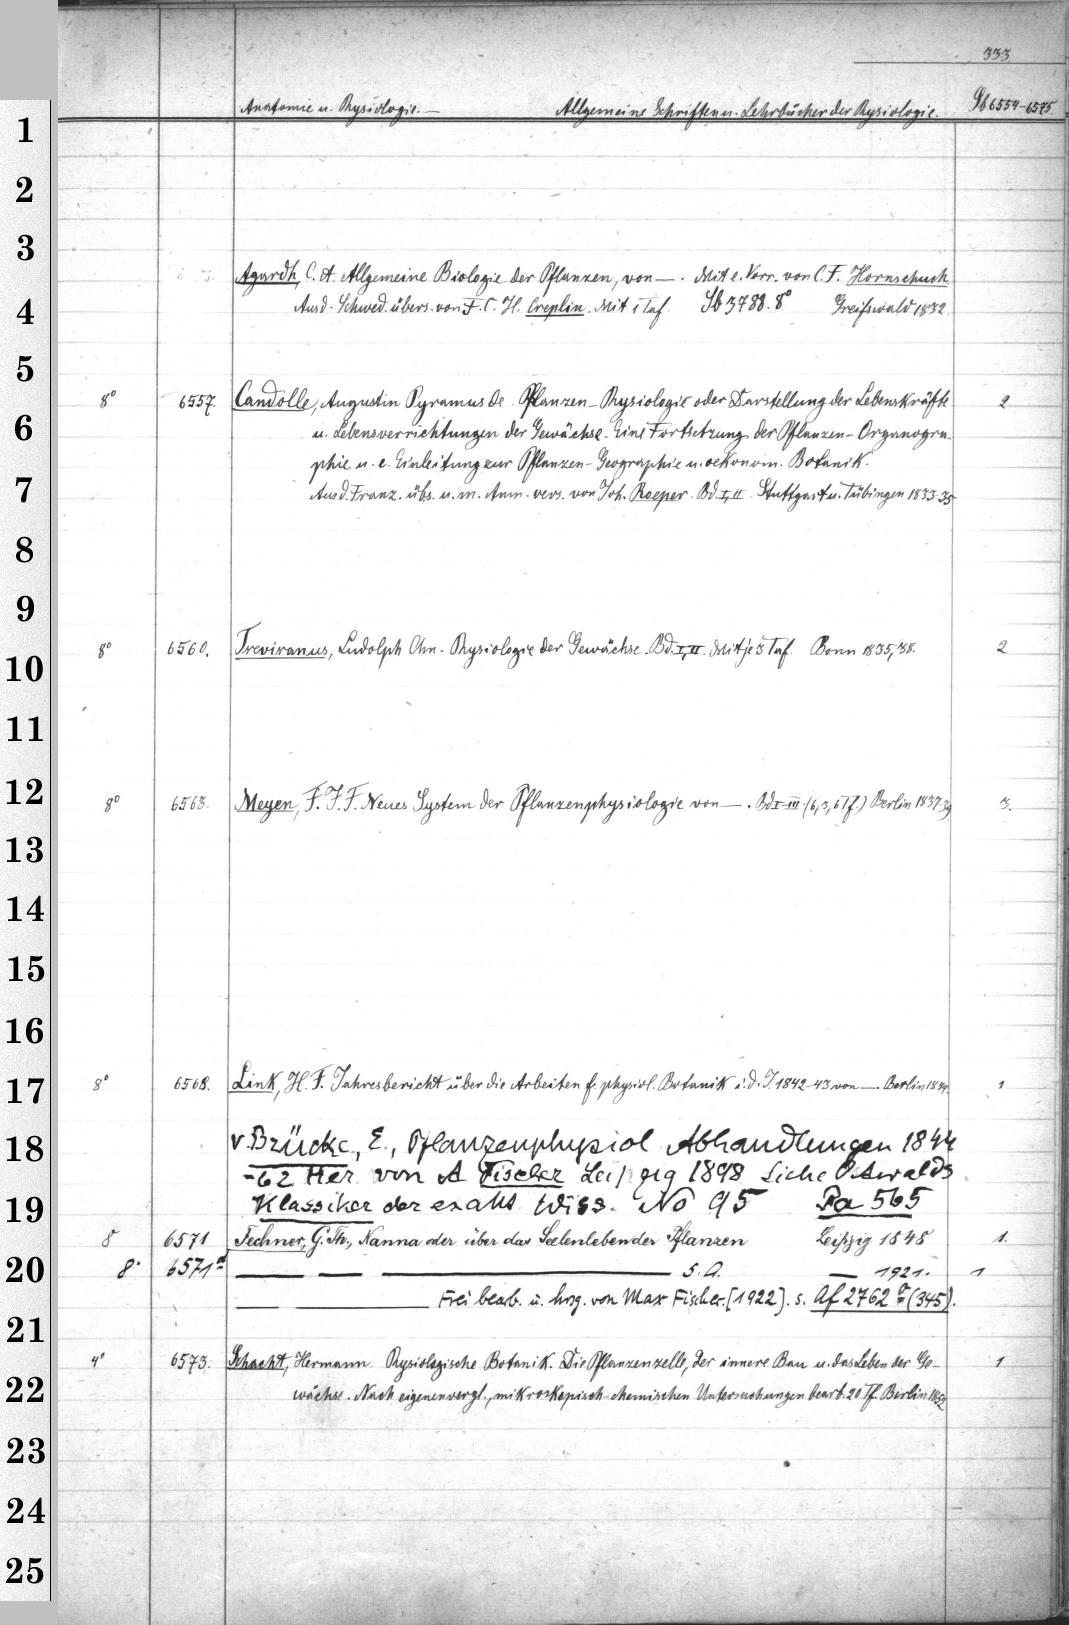 333
Anatomie u. Physiologie. — Allgemeine Schriften u. Lehrbücher der Physiologie. Sb 6554-6575.
1
2
3
Agardh, C. A. Allgemeine Biologie der Pflanzen, von —. Mit e. Vorr. von C. F. Hornschuch
4
Ausd. Schwed. übers. von F. C. H. Creplin. Mit 1 Taf. Sb 3788. 8° Greifswald 1832
5
8° 6557. Candolle, Augustin Pyramus de. Pflanzen-Physiologie oder Darstellung der Lebenskräfte 2
6
u. Lebensverrichtungen der Gewächse. Eine Fortsetzung der Pflanzen-Organogra-
phie u. e. Einleitung zur Pflanzen-Geographie u. oekonom. Botanik.
7
Aus d. Franz. übs. u. m. Anm. vers. von Joh. Roeper. Bd. I, II. Stuttgart u. Tübingen 1833-35
8
9
8° 6560. Treviranus, Ludolph Chn. Physiologie der Gewächse. Bd. I, II. Mit je 3 Taf. Bonn 1835, 38. 2
10
11
12
8° 6563. Meyen, F. J. F. Neues System der Pflanzenphysiologie von —. Bd I-III (6, 3, 6 Tf.) Berlin 1837-39 3.
13
14
15
16
17
8° 6568. Link, H. F. Jahresbericht über die Arbeiten f. physiol. Botanik i. d. J. 1842-43 von —. Berlin 1844. 1
18
v. Brücke, E., Pflanzenphysiol Abhandlungen 1844
-62 Her. von A Fischer Leipzig 1898 Siehe Ostwalds
19
Klassiker der exakt Wiss. No 95 Pa 565
8 6571 Fechner, G. Th., Nanna oder über das Seelenleben der Pflanzen Leipzig 1848 1.
20
8° 6571a — — — s. a. — 1921. 1
— — Frei bearb. u. hrsg. von Max Fischer. [1922]. s. Af 2762 a (345).
21
4° 6573. Schacht, Hermann. Physiologische Botanik. Die Pflanzenzelle, der innere Bau u. das Leben der Ge- 1
22
wächse. Nach eigenen vergl., mikroskopisch-chemischen Untersuchungen bearb. 20 Tf. Berlin 1852
23
24
25